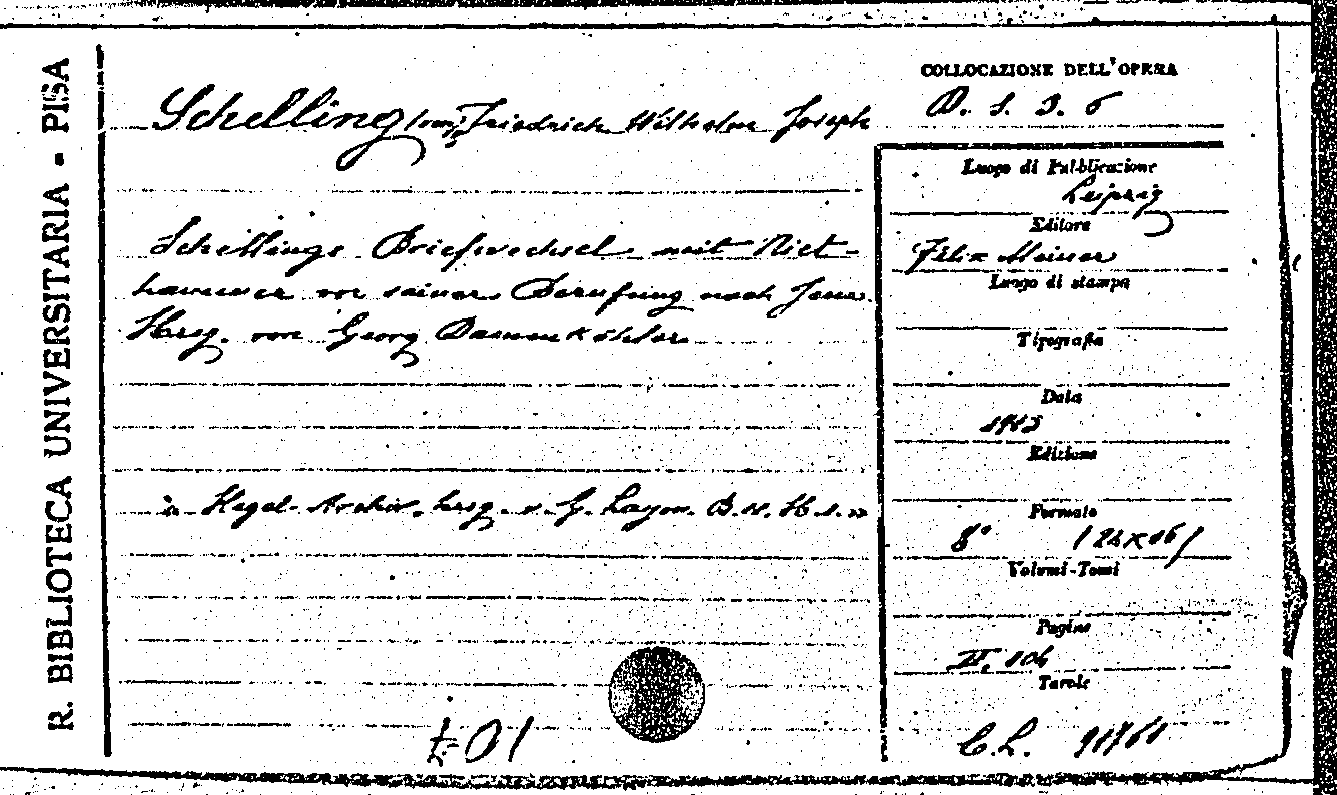 R. BIBLIOTECA UNIVERSITARIA - PISA
Schelling (von) Friedrich Wilhelm Joseph
Schellings Briefwechsel mit Niet-
hammer vor seiner Berufung nach Jena.
Hrsg. von Georg Dammköhler
in Hegel-Archiv. hrsg. v. G. Lasson. B. II. H. 1.
COLLOCAZIONE DELL'OPERA
Luogo di Pubblicazione
Leipzig
Editore
Felix Meiner
Luogo di stampa
Tipografia
Data
1913
Edizione
Formato
8°
Volumi-Tomi
Pagine
II. 104
Tavole